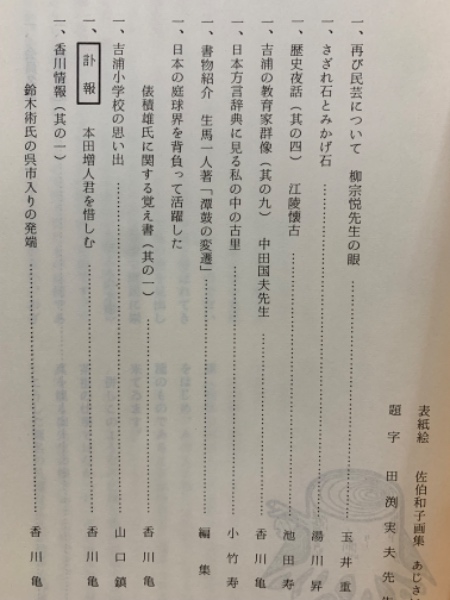 表紙絵　佐伯和子画集　あじさ
題字　田渕実夫先生
一、再び民芸について　柳宗悦先生の眼……玉井重
一、さざれ石とみかげ石……湯川昇
一、歴史夜話（其の四）　江陵懐古……池田寿
一、吉浦の教育家群像（其の九）　中田国夫先生……香川亀
一、日本方言辞典に見る私の中の古里……小竹寿
一、書物紹介　生馬一人著「潭鼓の変遷」……編集
一、日本の庭球界を背負って活躍した
俵積雄氏に関する覚え書（其の一）……香川亀
一、吉浦小学校の思い出……山口鎮
一、訃報　本田増人君を惜しむ……香川亀
一、香川情報（其の一）
鈴木術氏の呉市入りの発端……香川亀